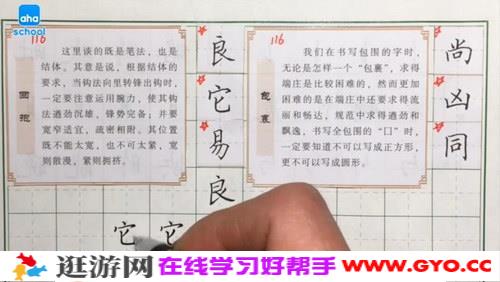 aha
school
116
这里谈的既是笔法，也是
结体，其意是说，根据结体的
要求，当钩法向里转锋出钩时，
一定要注意运用腕力，使其钩
法遒劲沉雄，锋势完备；并要
宽窄适宜，疏密相附。其位置
既不能太宽，也不可太紧，宽
则散漫，紧则拥挤。
回抱
良
它
易
良
116
我们在书写包围的字时，
无论是怎样一个“包裹”，求得
端庄是比较困难的，然而更加
困难的是在端庄中还要求得流
丽和畅达，规范中求得遒劲和
飘逸，书写全包围的“囗”时，
一定要知道不可以写成正方形，
更不可以写成圆形。
包裹
尚
凶
同
它 它
逛游网 在线学习好帮手 www.GYO.cc